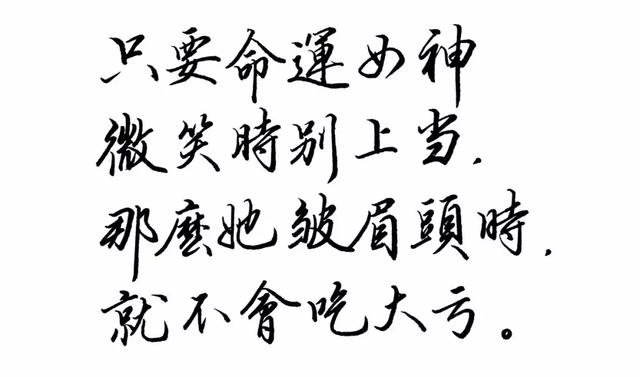 只要命運女神
微笑時别上当,
那麼她皱眉頭時,
就不會吃大亏。